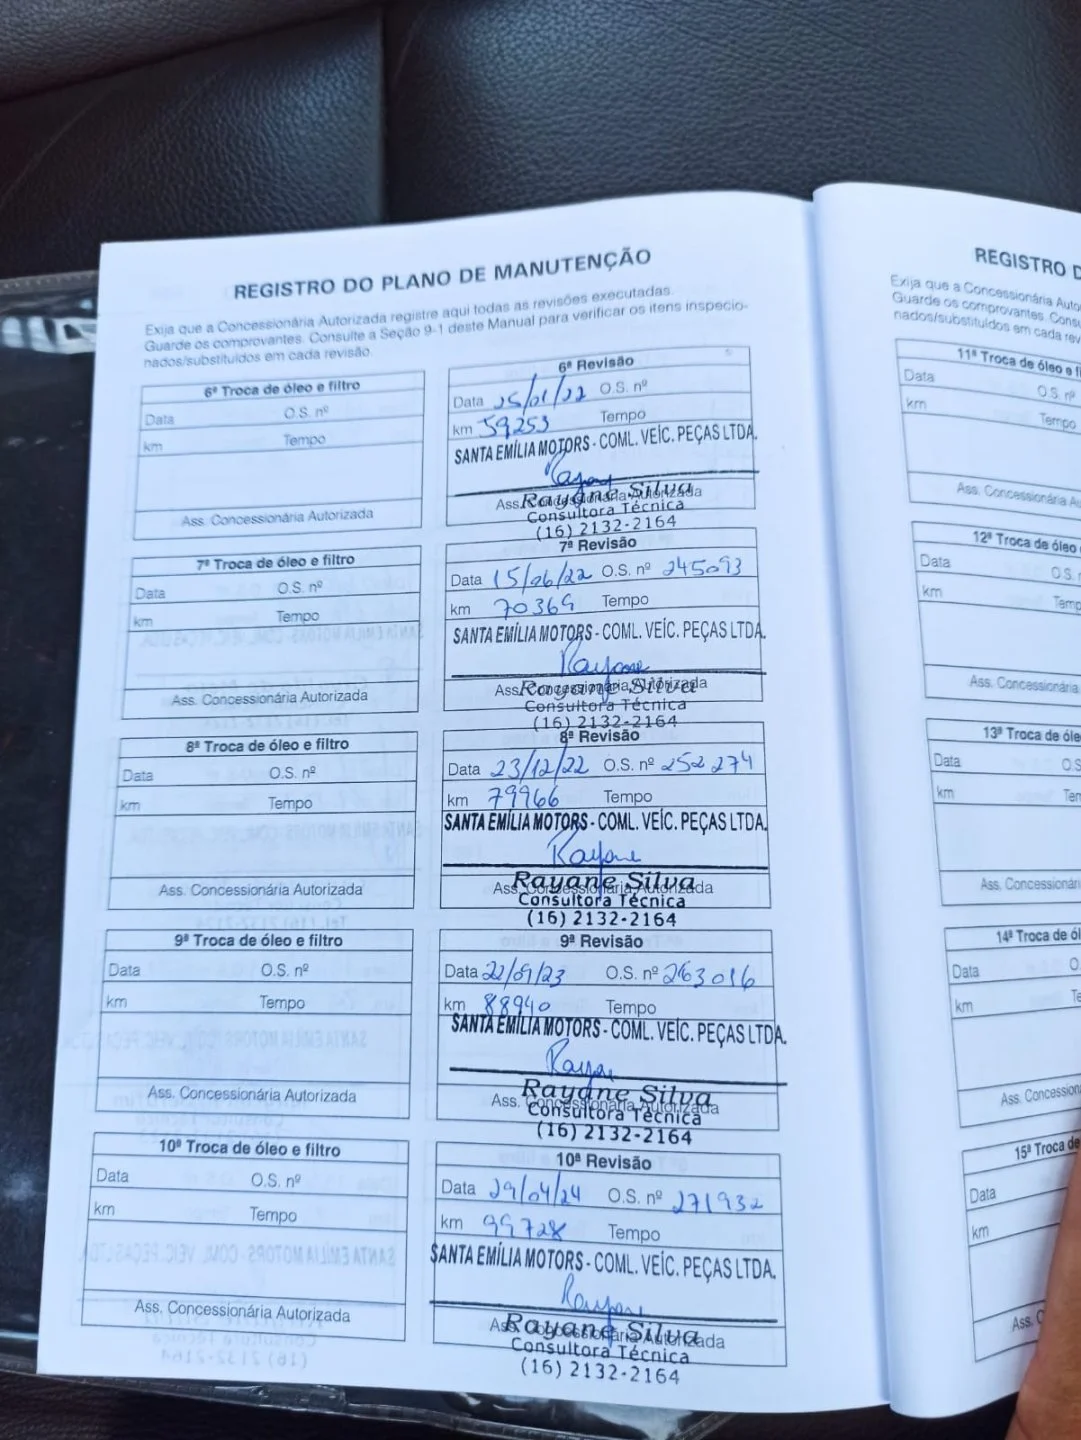 REGISTRO DO PLANO DE MANUTENÇÃO
Exija que a Concessionária Autorizada registre aqui todas as revisões executadas.
Guarde os comprovantes. Consulte a Seção 9-1 deste Manual para verificar os itens inspecio-
nados/substituídos em cada revisão.
6ª Troca de óleo e filtro
Data O.S. nº
km Tempo
Ass. Concessionária Autorizada
6ª Revisão
Data 25/01/22 O.S. nº
km 59253 Tempo
SANTA EMÍLIA MOTORS - COML. VEÍC. PEÇAS LTDA.
Ass. Concessionária Autorizada
Rayane Silva
Consultora Técnica
(16) 2132-2164
7ª Troca de óleo e filtro
Data O.S. nº
km Tempo
Ass. Concessionária Autorizada
7ª Revisão
Data 15/06/22 O.S. nº 245093
km 70369 Tempo
SANTA EMÍLIA MOTORS - COML. VEÍC. PEÇAS LTDA.
Rayane
Ass. Concessionária Autorizada
Rayane Silva
Consultora Técnica
(16) 2132-2164
8ª Troca de óleo e filtro
Data O.S. nº
km Tempo
Ass. Concessionária Autorizada
8ª Revisão
Data 23/12/22 O.S. nº 252274
km 79966 Tempo
SANTA EMÍLIA MOTORS - COML. VEÍC. PEÇAS LTDA.
Rayane
Ass. Concessionária Autorizada
Rayane Silva
Consultora Técnica
(16) 2132-2164
9ª Troca de óleo e filtro
Data O.S. nº
km Tempo
Ass. Concessionária Autorizada
9ª Revisão
Data O.S. nº 263016
km 88940 Tempo
SANTA EMÍLIA MOTORS - COML. VEÍC. PEÇAS LTDA.
Ass. Concessionária Autorizada
Rayane Silva
Consultora Técnica
(16) 2132-2164
10ª Troca de óleo e filtro
Data O.S. nº
km Tempo
Ass. Concessionária Autorizada
10ª Revisão
Data 29/04/24 O.S. nº 271932
km 99728 Tempo
SANTA EMÍLIA MOTORS - COML. VEÍC. PEÇAS LTDA.
Ass. Concessionária Autorizada
Rayane Silva
Consultora Técnica
(16) 2132-2164
REGISTRO D
Exija que a Concessionária Auto
Guarde os comprovantes. Cons
nados/substituídos em cada rev
11ª Troca de óleo e fi
Data O.S. nº
km Tempo
Ass. Concessionária Au
12ª Troca de óleo
Data O.S.
km Temp
Ass. Concessionária
13ª Troca de óle
Data O.S
km Ten
Ass. Concessionári
14ª Troca de ól
Data O.
km Te
Ass. Concession
15ª Troca de
Data
km
Ass. C